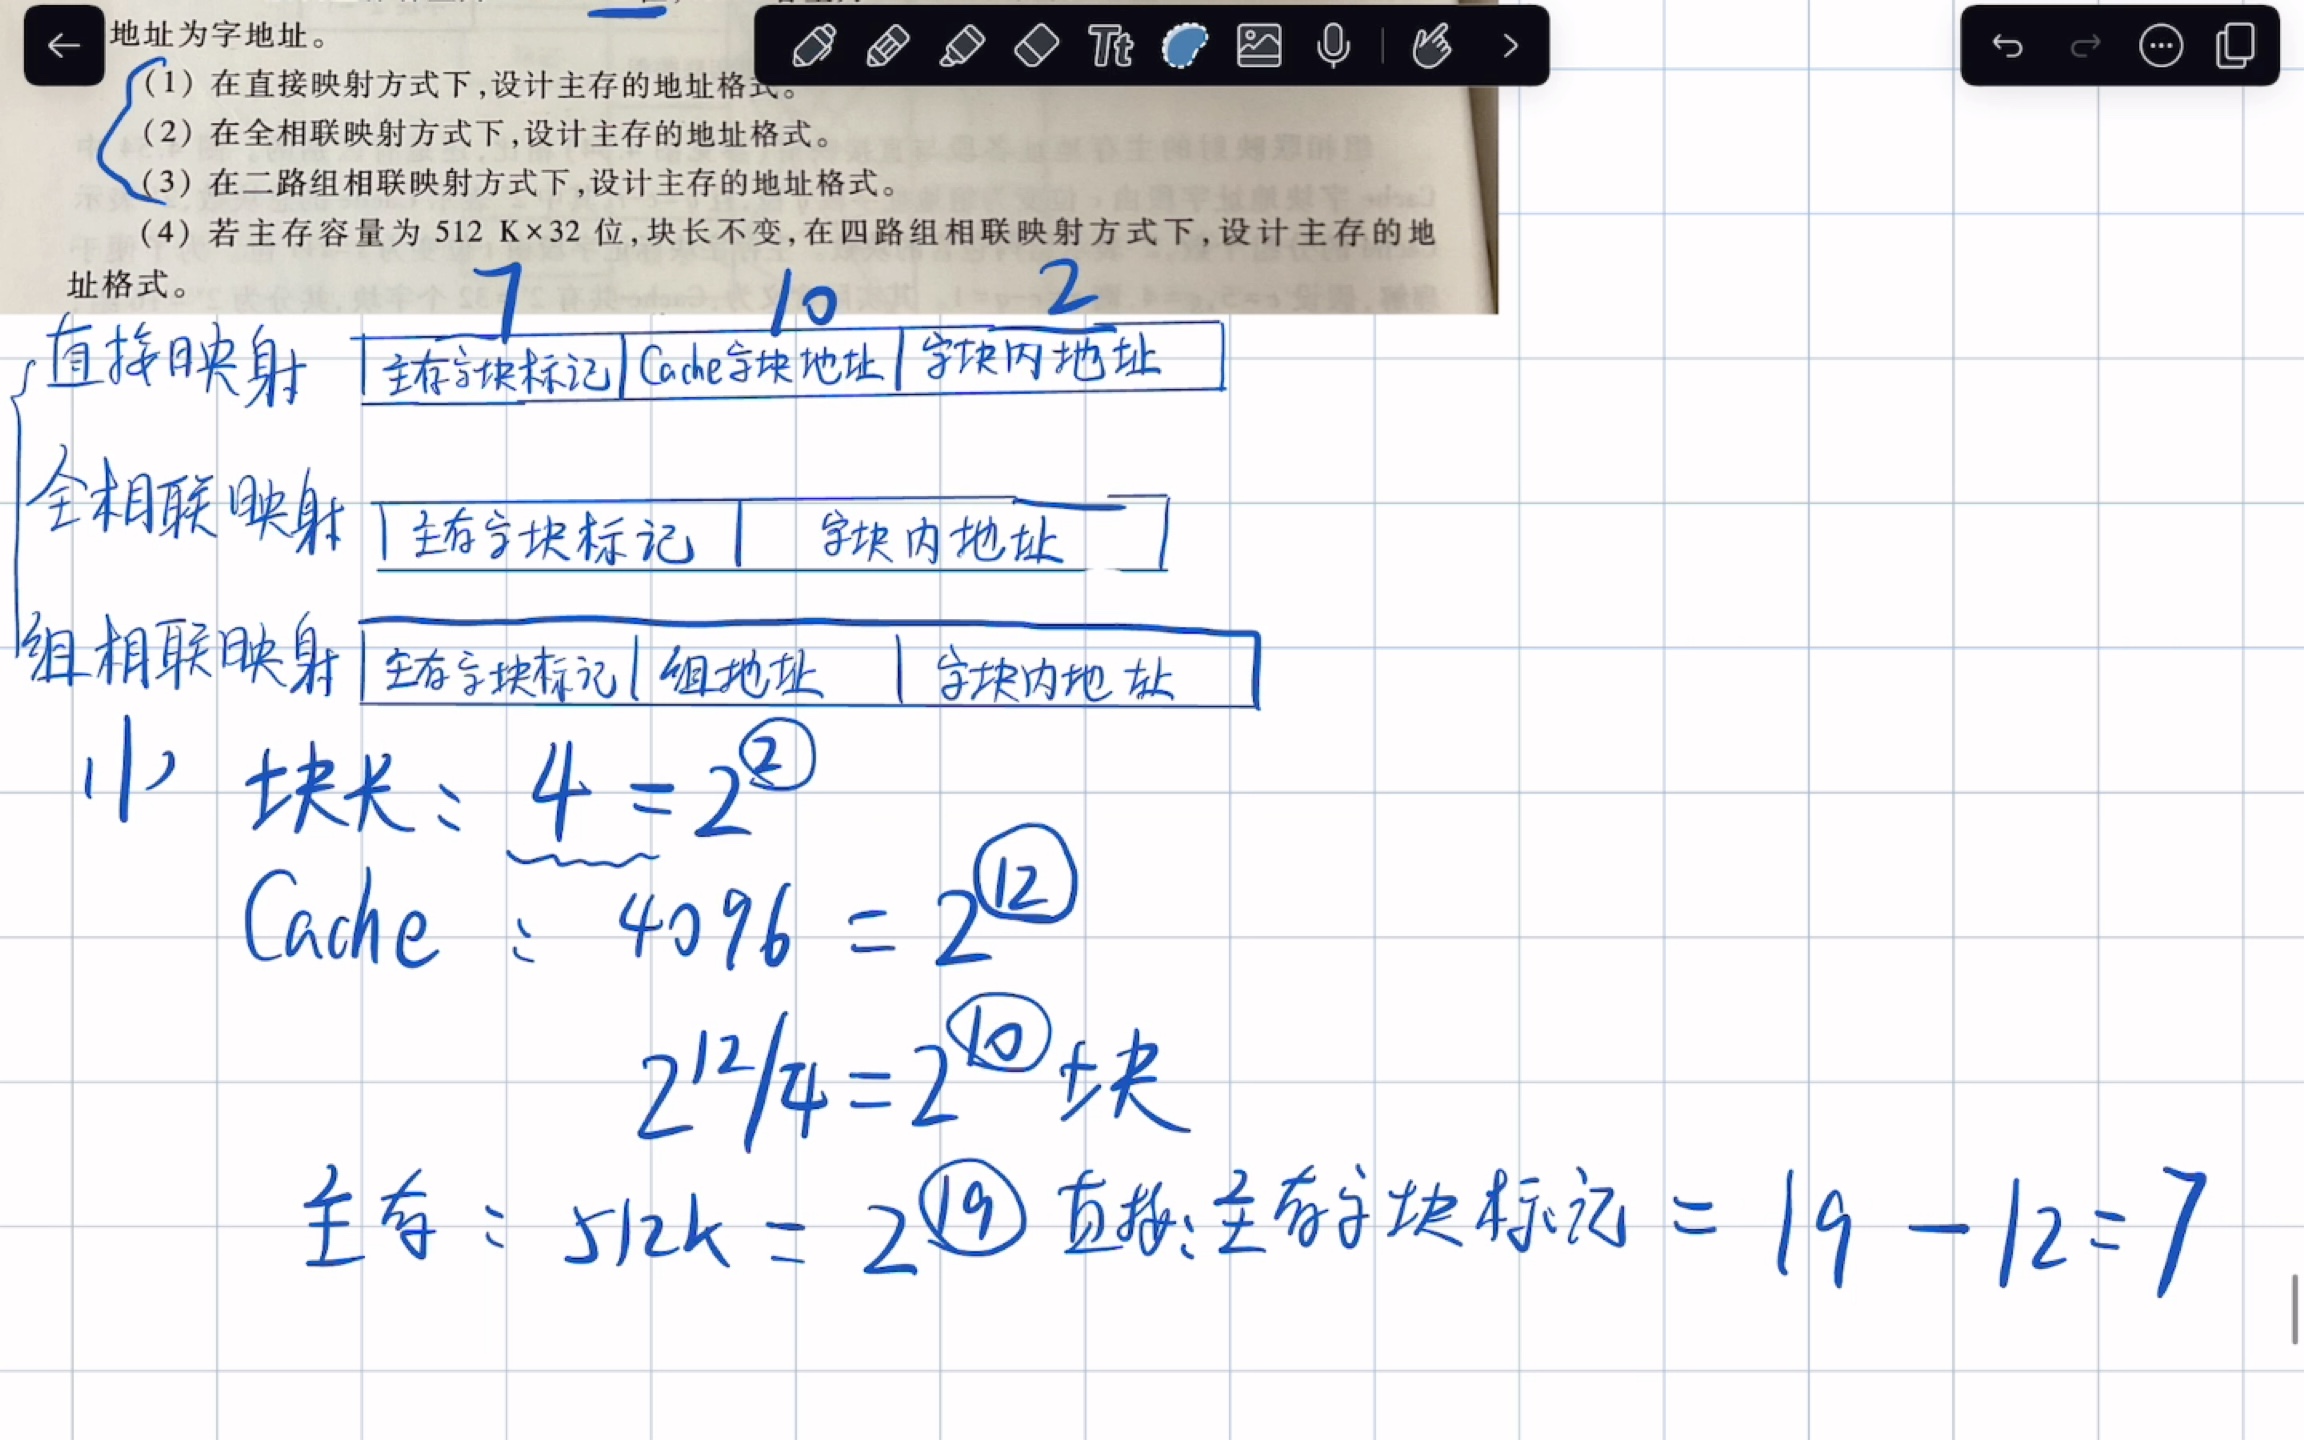 地址为字地址。
(1) 在直接映射方式下,设计主存的地址格式。
(2) 在全相联映射方式下,设计主存的地址格式。
(3) 在二路组相联映射方式下,设计主存的地址格式。
(4) 若主存容量为 512 K×32 位,块长不变,在四路组相联映射方式下,设计主存的地
址格式。
7 10 2
直接映射 主存字块标记 Cache字块地址 字块内地址
全相联映射 主存字块标记 字块内地址
组相联映射 主存字块标记 组地址 字块内地址
(1) 块长: 4 = 2^2
Cache : 4096 = 2^12
2^12/4 = 2^10 块
主存: 512k = 2^19 直接: 主存字块标记 = 19 - 12 = 7
Tt